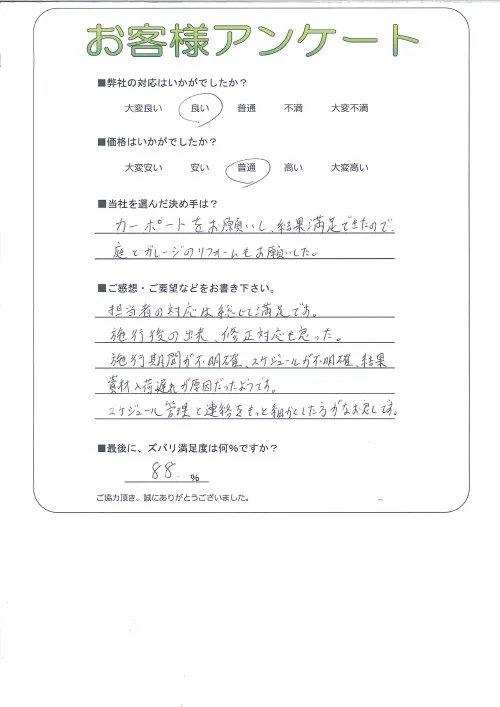 お客様アンケート
■弊社の対応はいかがでしたか?
大変良い 良い 普通 不満 大変不満
■価格はいかがでしたか?
大変安い 安い 普通 高い 大変高い
■当社を選んだ決め手は?
カーポートをお願いし、結果満足できたので、
庭とガレージのリフォームもお願いした。
■ご感想・ご要望などをお書き下さい。
担当者の対応は総じて満足です。
施行後の出来、修正対応も った。
施行期間が不明確、スケジュールが不明確、結果
資材入荷遅れが原因だったようです。
スケジュール管理と連絡をもっと細かくした方がなお良しです。
■最後に、ズバリ満足度は何%ですか?
88. %
ご協力頂き、誠にありがとうございました。